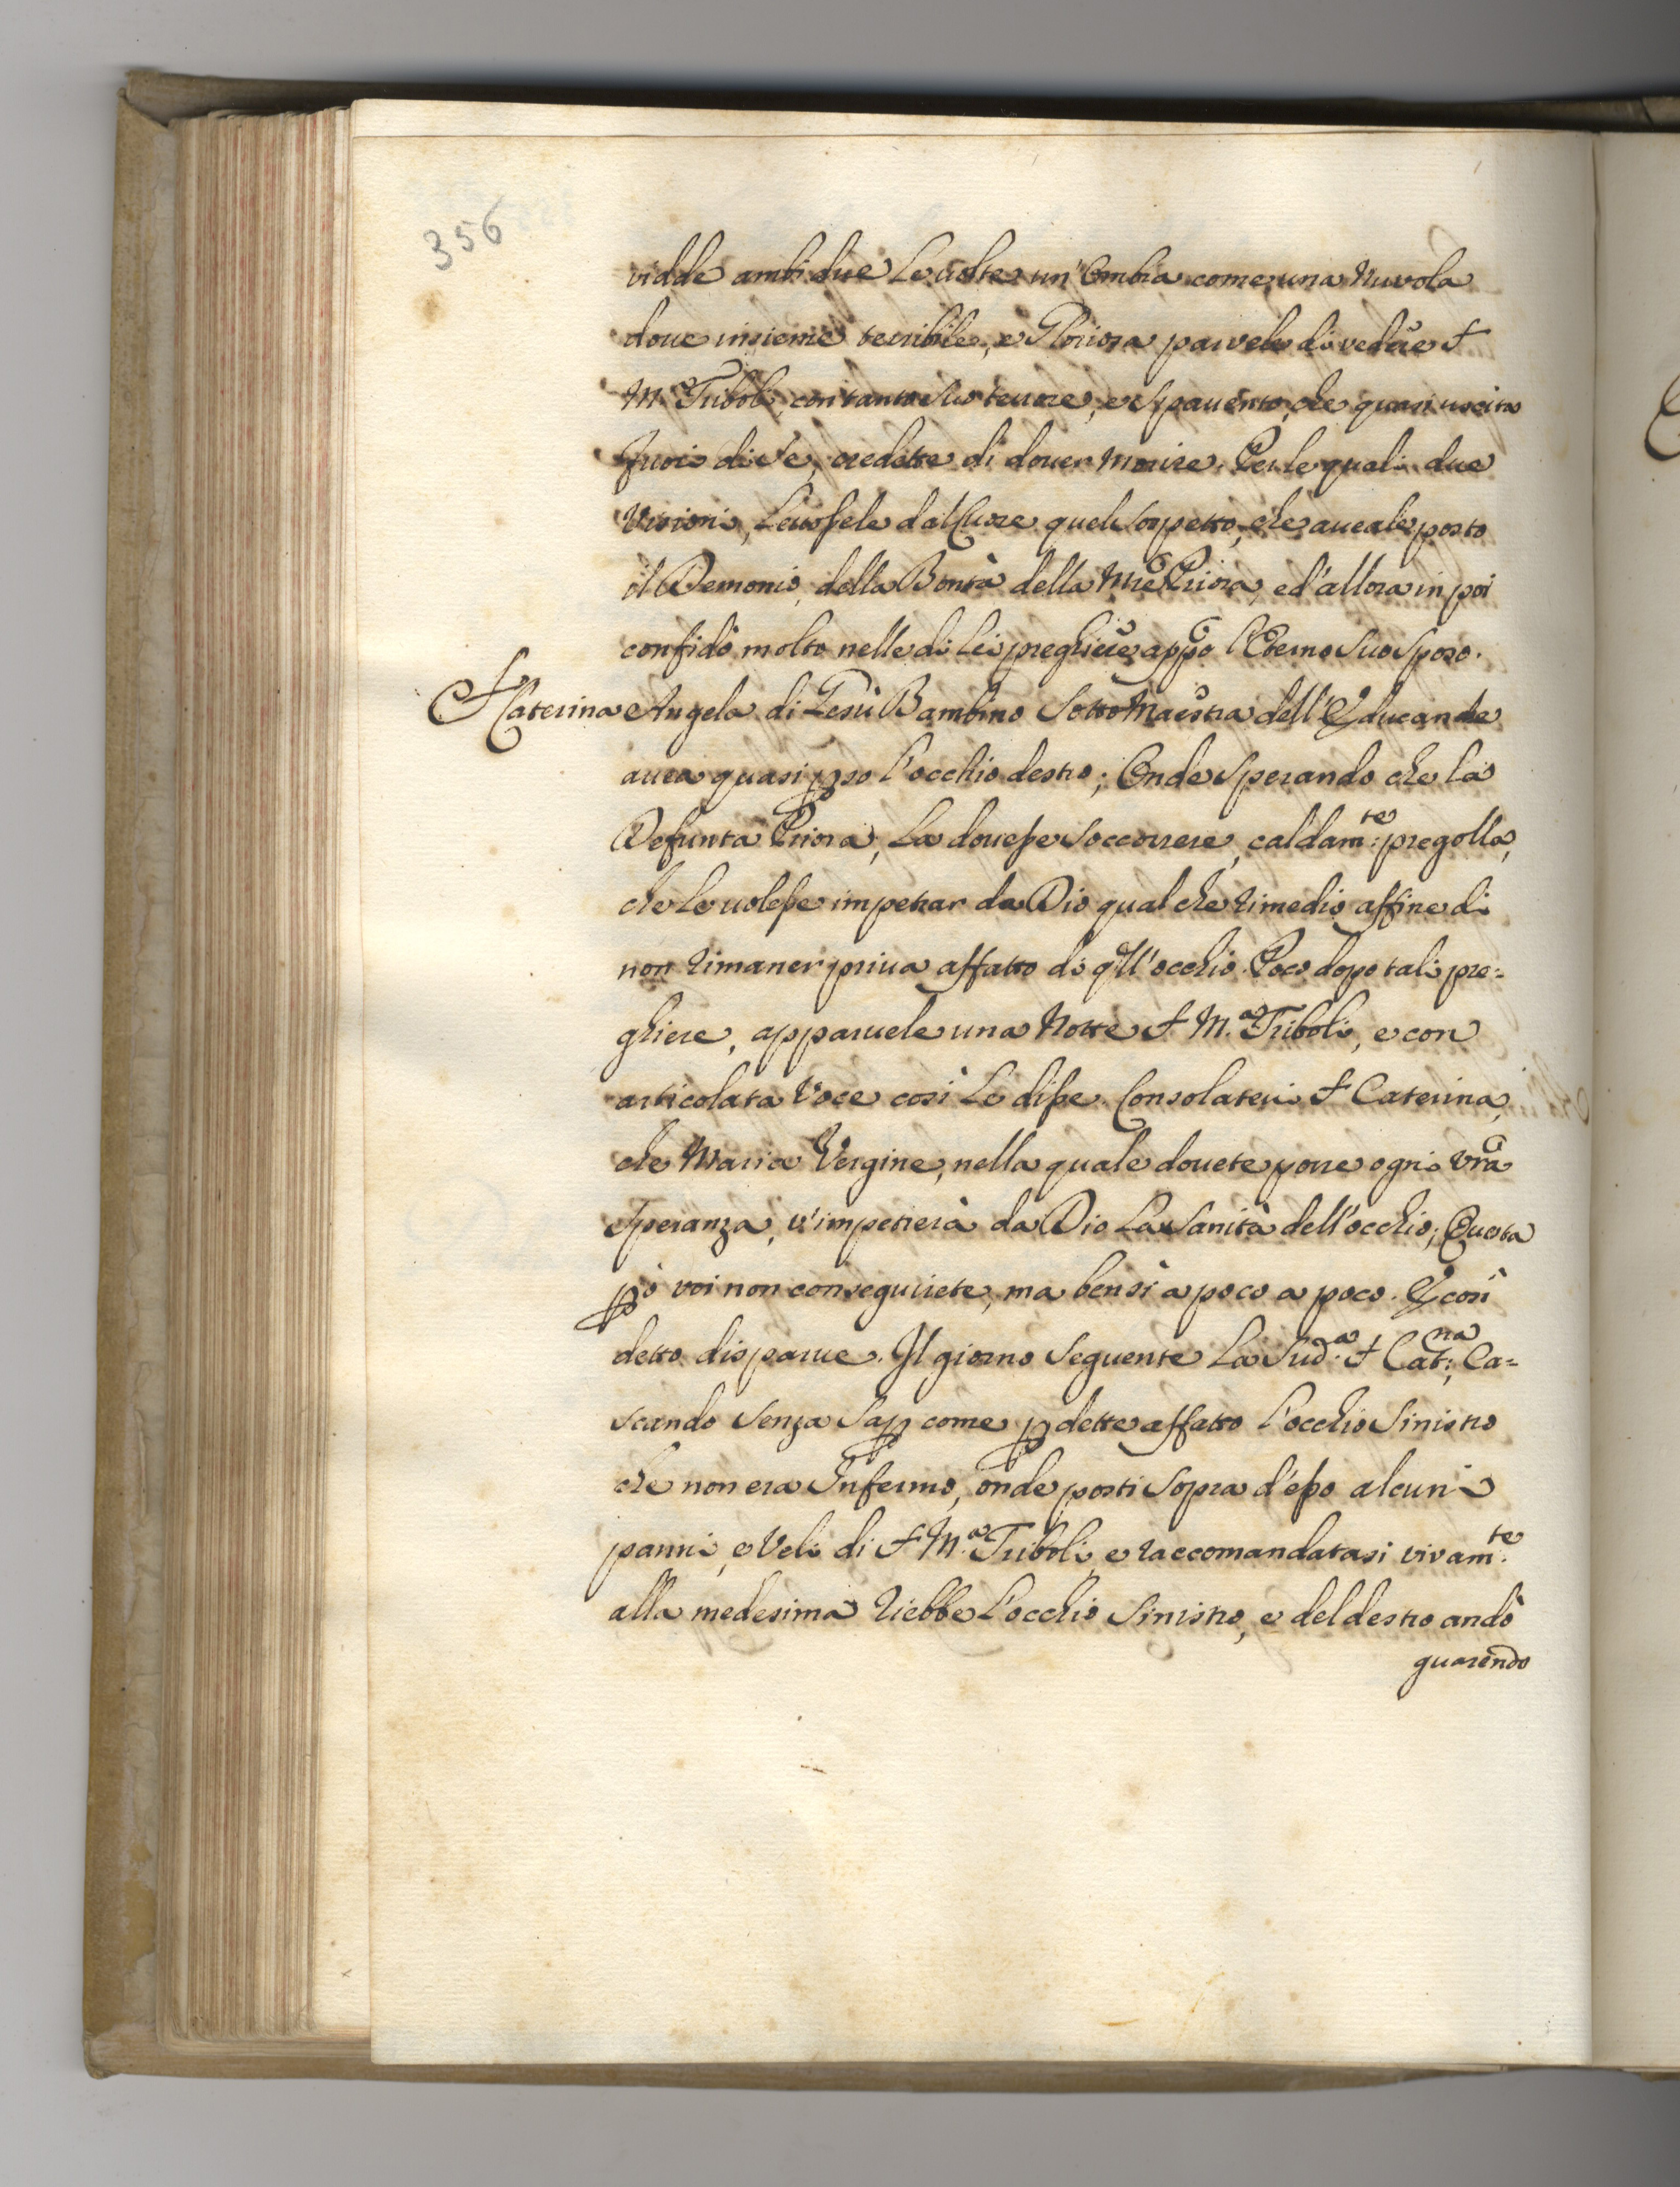 356
vidde ambi due Le volte un' Ombra come una Nuvola
doue insieme terribile, e Gloriosa parvele di vedere S.
M.ª Triboli, con tanto suo terrore, e spauento, che quasi uscita
fuori di se, credette di douer morire. Per le quali due
Visioni, Leuossele dal Cuore quel sospetto, che aueale posto
il Demonio, della Bontà della Mrẽ Priora, ed' allora in poi
confidò molto nelle di Lei preghiere app̃o l'Eterno suo Sposo.
S. Caterina Angela di Gesù Bambino Sotto Maestra dell' Educande
auea quasi p̱so l'occhio destro; Onde sperando che la
Defunta Priora, La douesse soccorrere, caldam:te pregolla,
che Le uolesse impetrar da Dio qual che rimedio affine di
non rimaner priua affatto di q̃ll' occhio. Poco dopo tali pre=
ghiere, apparuele una Notte S. M.ª Triboli, e con
articolata Voce così Le disse. Consolateui S. Caterina,
che Maria Vergine, nella quale douete porre ogni vr̃a
Speranza, v'impetrerà da Dio La Sanità dell'occhio; Questa
p̱ò voi non conseguirete, ma bensì a poco a poco. E così
detto disparue. Il giorno seguente La Sud.ª S. Cat:na Ca=
scando senza sap̱ come p̱dette affatto l'occhio Sinistro
che non era Infermo, onde posti sopra d'esso alcuni
panni, e Veli di S. M.ª Triboli, e raccomandatasi vivam:te
alla medesima riebbe L'occhio Sinistro, e del destro andò
guarendo